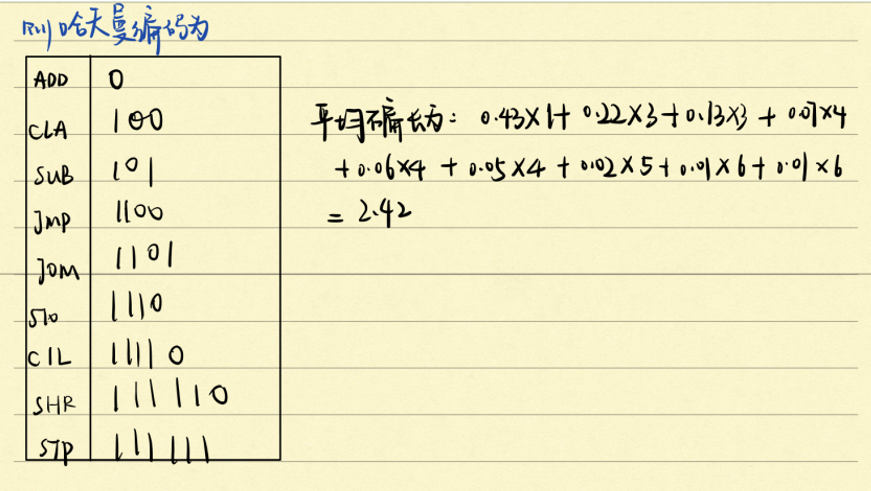 则哈夫曼编码为
ADD 0
CLA 100
SUB 101
JMP 1100
JOM 1101
STO 1110
CIL 11110
SHR 111110
STP 111111
平均码长为: 0.43×1+0.22×3+0.13×3+0.07×4
+0.06×4+0.05×4+0.02×5+0.01×6+0.01×6
=2.42